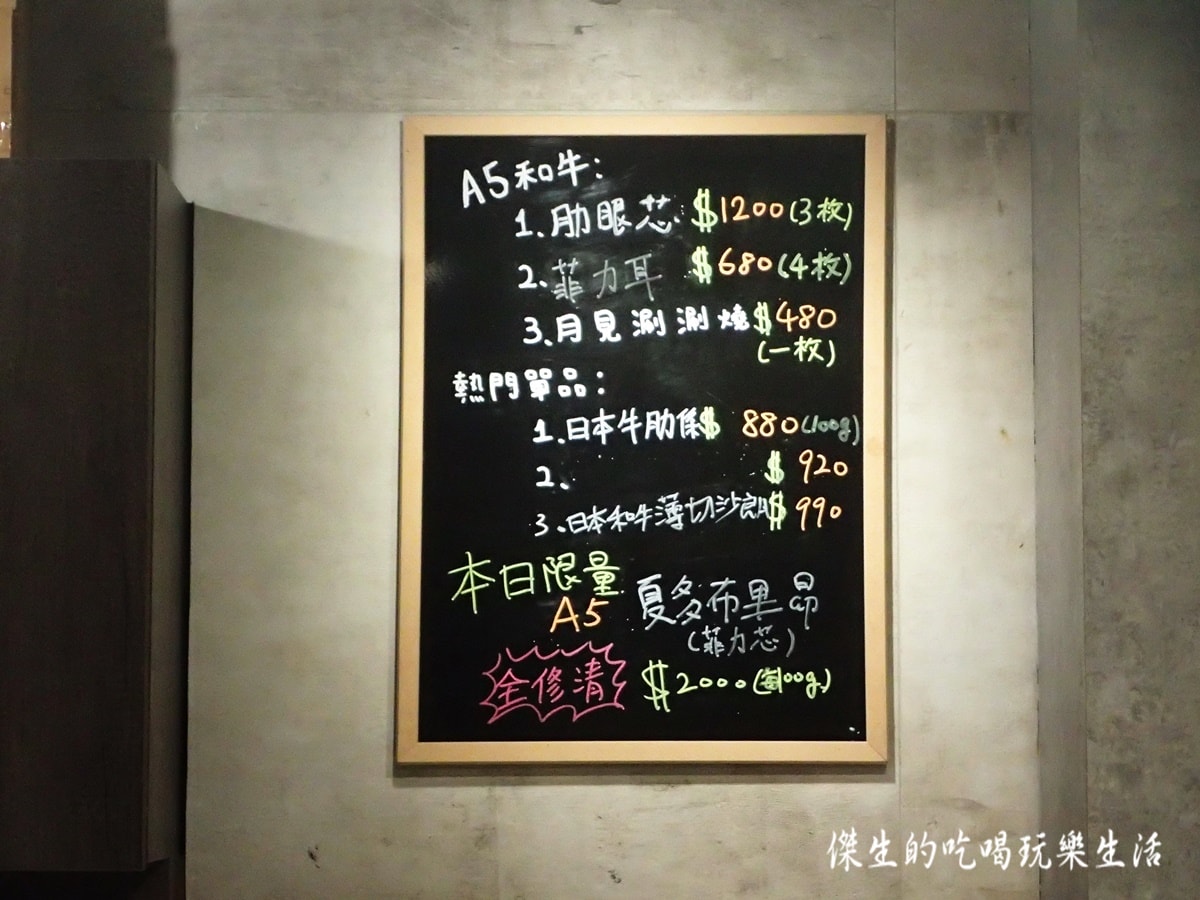 A5和牛:
1.肋眼芯 $1200(3枚)
2.菲力耳 $680(4枚)
3.月見涮涮燒$480
(一枚)
熱門單品:
1.日本牛肋條$ 880(100g)
2. $ 920
3.日本和牛薄切沙朗$ 990
本日限量
A5 夏多布里昂
(菲力芯)
全修清 $2000(每100g)
傑生的吃喝玩樂生活